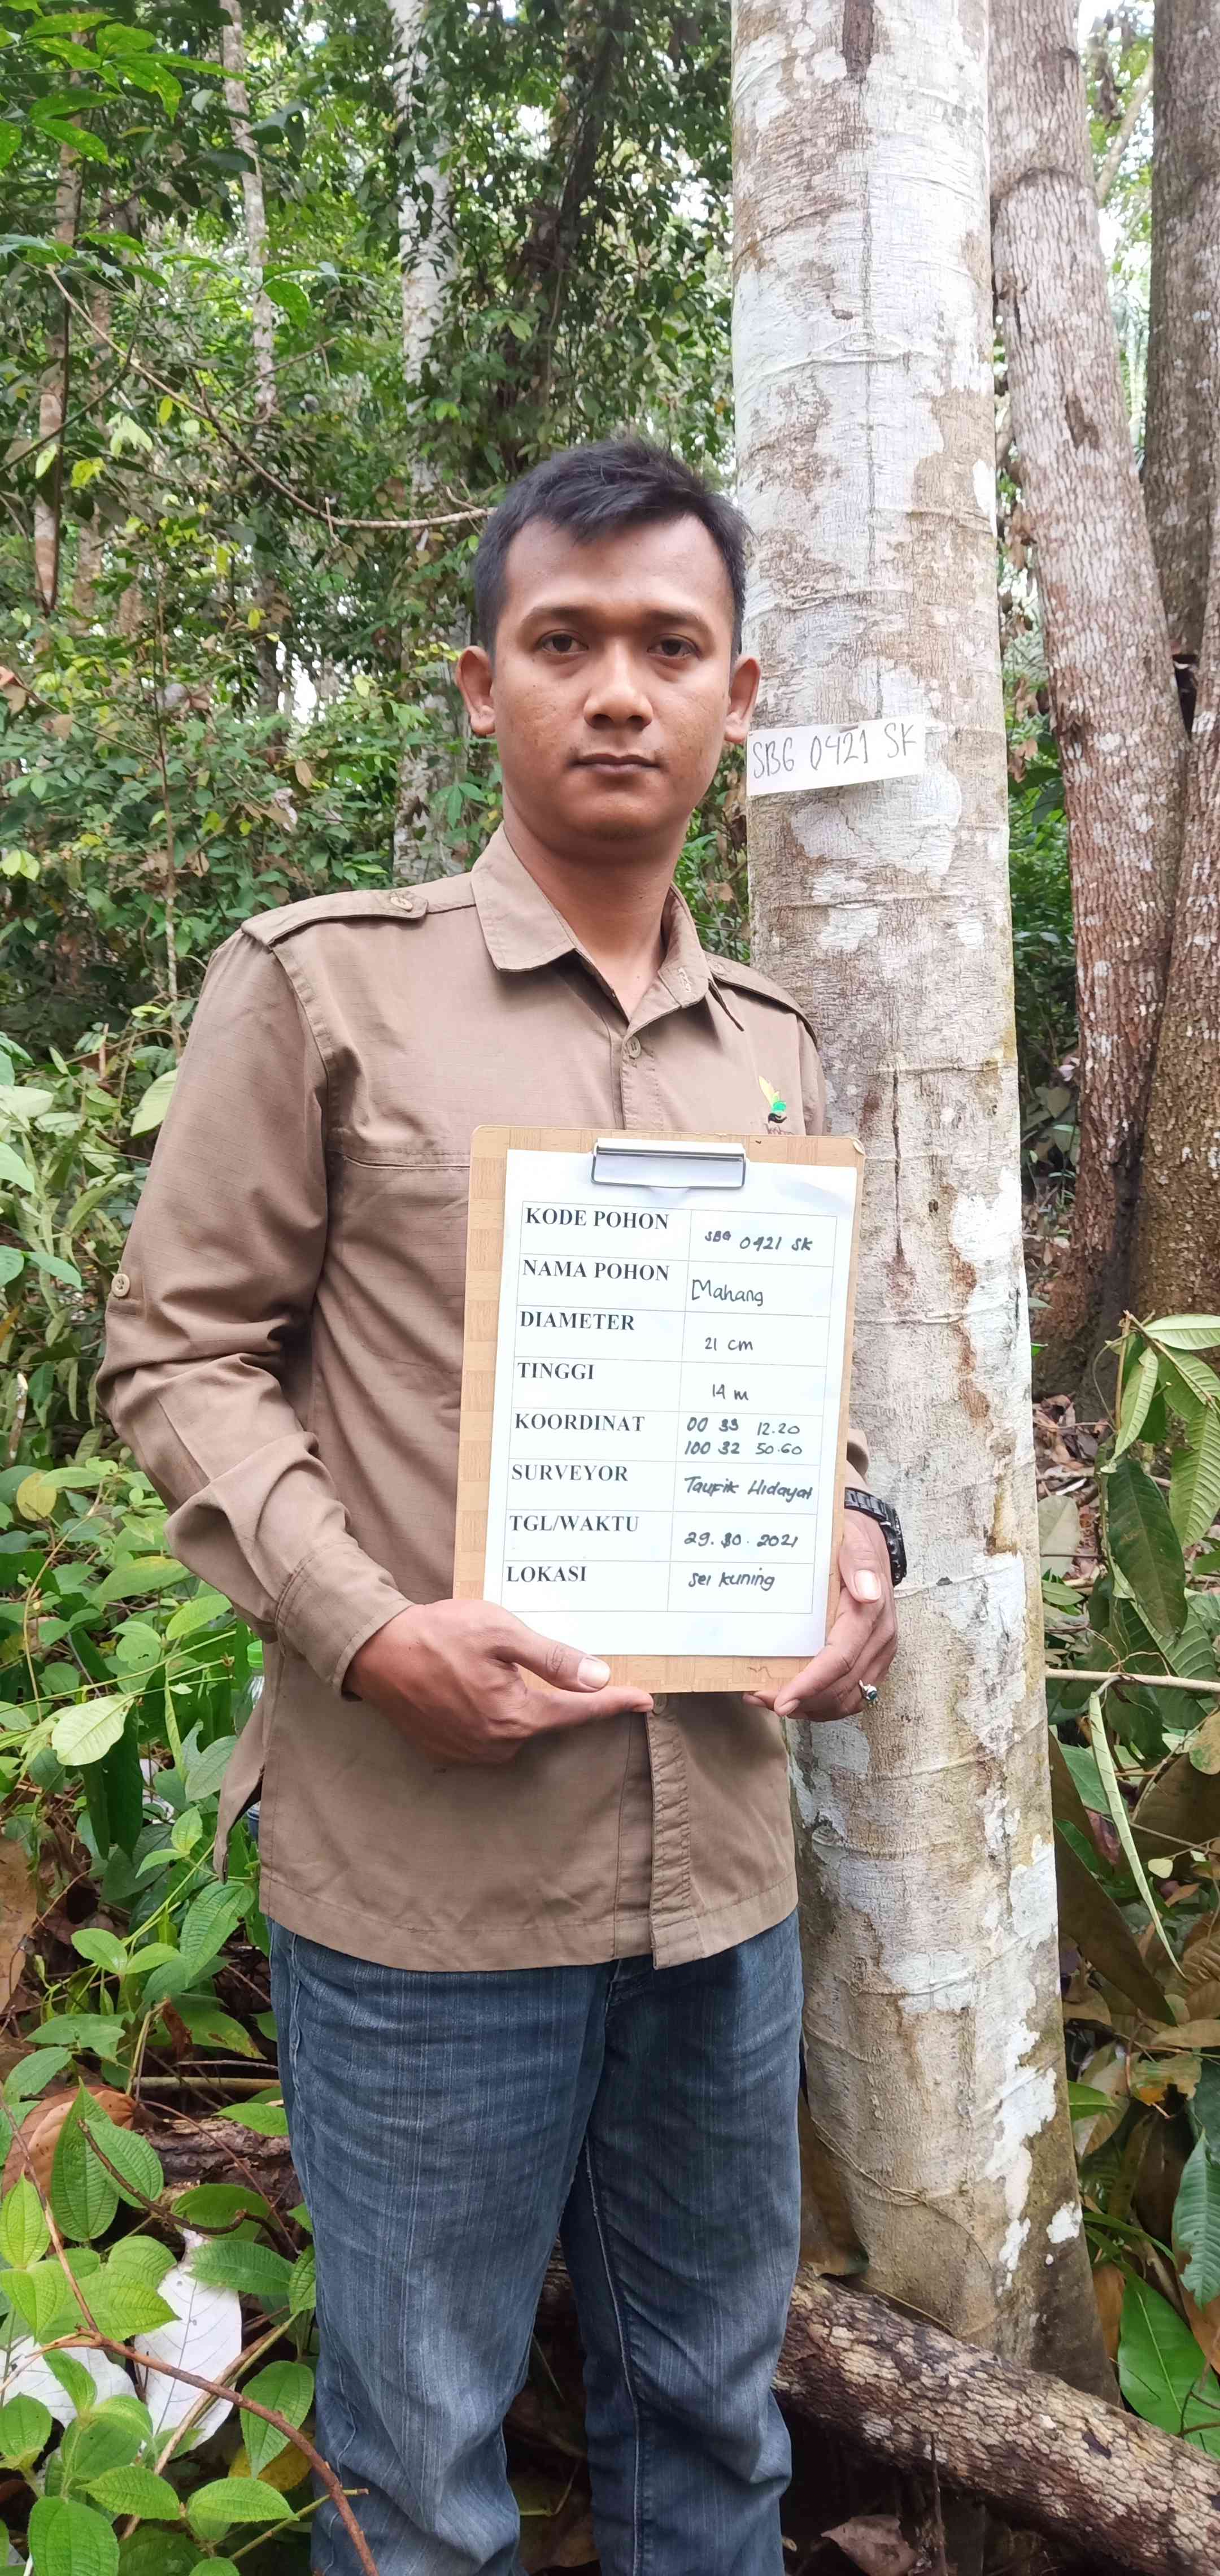 SBG 0421 SK
KODE POHON SBG 0421 SK
NAMA POHON Mahang
DIAMETER 21 cm
TINGGI 14 m
KOORDINAT 00 33 12.20
100 32 50.60
SURVEYOR Taufik Hidayat
TGL/WAKTU 29. 2021
LOKASI Sei Kuning